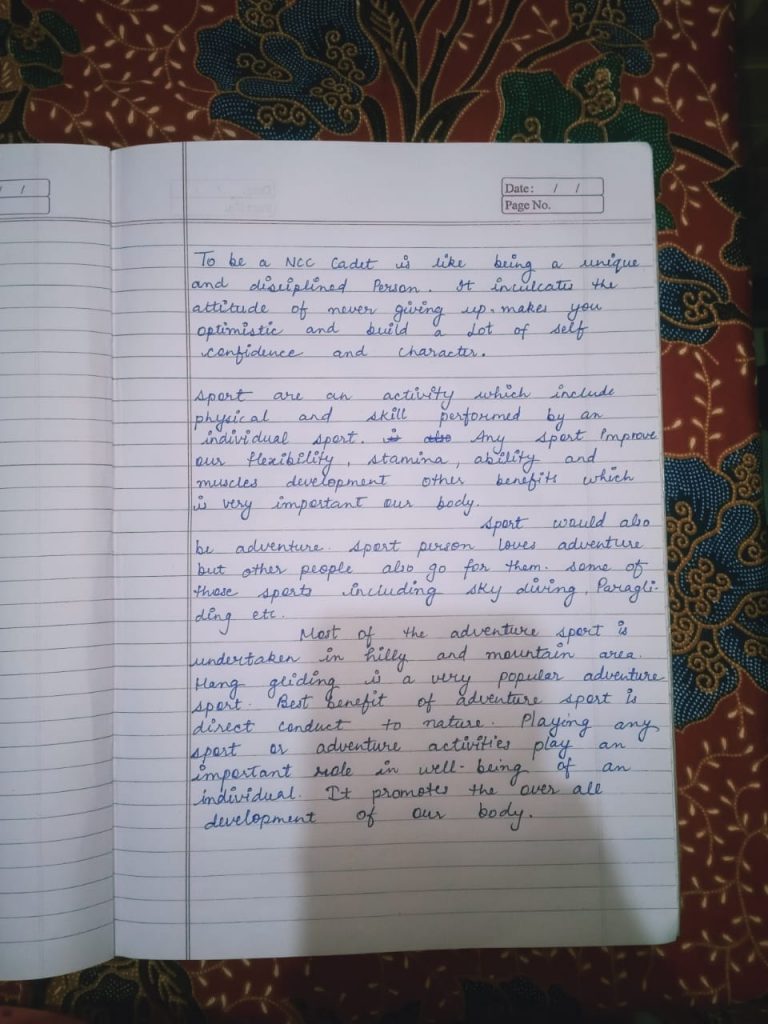 / /
Date: / /
Page No.
To be a NCC Cadet is like being a unique
and disciplined Person. It inculcates the
attitude of never giving up. makes you
optimistic and build a Lot of self
confidence and character.
Sport are an activity which include
physical and skill performed by an
individual sport. is also Any sport Improve
our flexibility, stamina, ability and
muscles development other benefits which
is very important our body.
Sport would also
be adventure. Sport person loves adventure
but other people also go for them. Some of
those sports including sky diving, Paragli-
ding etc.
Most of the adventure sport is
undertaken in hilly and mountain area.
Hang gliding is a very popular adventure
sport. Best benefit of adventure sport is
direct conduct to nature. Playing any
sport or adventure activities play an
important role in well-being of an
individual. It promotes the over all
development of our body.